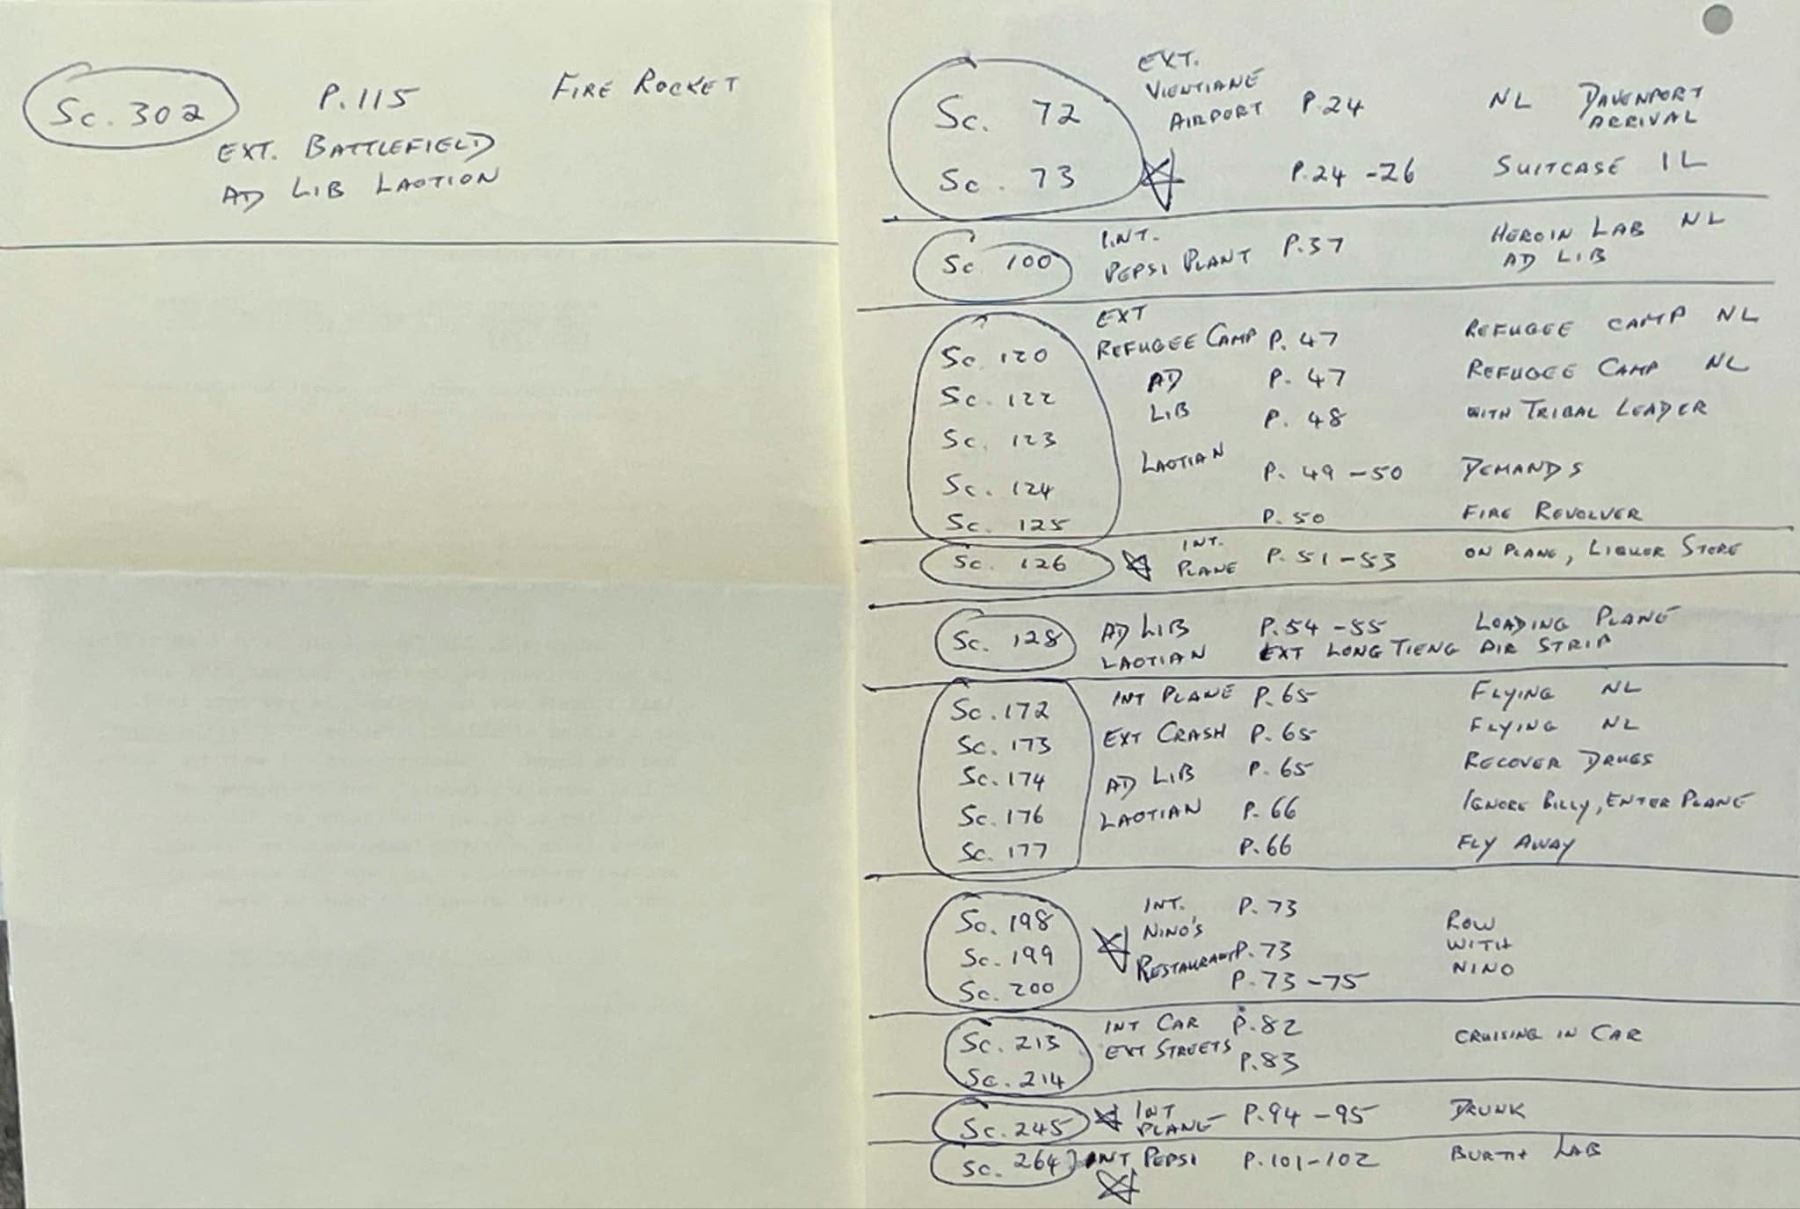 Sc. 302 P. 115 FIRE ROCKET
EXT. BATTLEFIELD
AD LIB LAOTION
EXT.
VIENTIANE
Sc. 72 AIRPORT P. 24 NL DAVENPORT
ARRIVAL
Sc. 73 P. 24 - 26 SUITCASE 1 L
INT. HEROIN LAB NL
Sc. 100 PEPSI PLANT P. 37 AD LIB
EXT
Sc. 120 REFUGEE CAMP P. 47 REFUGEE CAMP NL
Sc. 122 AD P. 47 REFUGEE CAMP NL
Sc. 123 LIB P. 48 WITH TRIBAL LEADER
Sc. 124 LAOTIAN P. 49 - 50 DEMANDS
Sc. 125 P. 50 FIRE REVOLVER
INT.
Sc. 126 PLANE P. 51 - 53 ON PLANE, LIQUOR STORE
Sc. 128 AD LIB P. 54 - 55 LOADING PLANE
LAOTIAN EXT LONG TIENG AIR STRIP
Sc. 172 INT PLANE P. 65 FLYING NL
Sc. 173 EXT CRASH P. 65 FLYING NL
Sc. 174 AD LIB P. 65 RECOVER DRUGS
Sc. 176 LAOTIAN P. 66 IGNORE BILLY, ENTER PLANE
Sc. 177 P. 66 FLY AWAY
INT. P. 73
Sc. 198 NINO'S ROW
Sc. 199 RESTAURANT P. 73 WITH
Sc. 200 P. 73 - 75 NINO
Sc. 213 INT CAR P. 82 CRUISING IN CAR
EXT STREETS
Sc. 214 P. 83
Sc. 245 INT P. 94 - 95 DRUNK
PLANE
Sc. 264 INT PEPSI P. 101 - 102 LAB